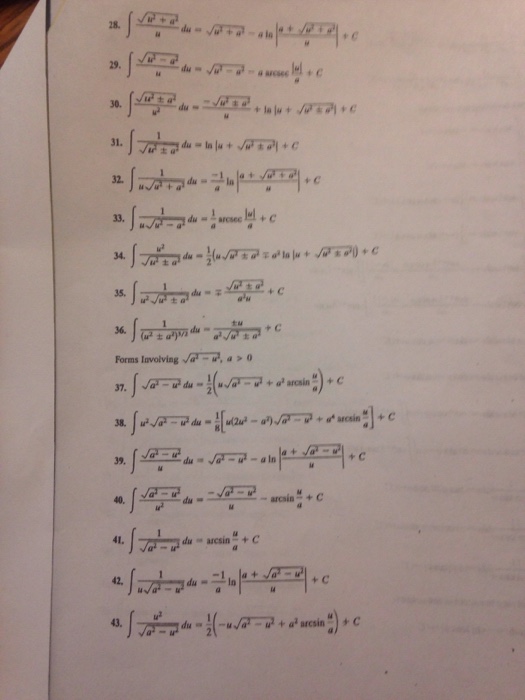 28. ∫ √(u² + a²)/u du = √(u² + a²) − a ln |(a + √(u² + a²))/u| + C
29. ∫ √(u² − a²)/u du = √(u² − a²) − a arcsec |u|/a + C
30. ∫ √(u² ± a²)/u² du = −√(u² ± a²)/u + ln |u + √(u² ± a²)| + C
31. ∫ 1/√(u² ± a²) du = ln |u + √(u² ± a²)| + C
32. ∫ 1/(u√(u² + a²)) du = −1/a ln |(a + √(u² + a²))/u| + C
33. ∫ 1/(u√(u² − a²)) du = 1/a arcsec |u|/a + C
34. ∫ u²/√(u² ± a²) du = 1/2 (u√(u² ± a²) ∓ a² ln |u + √(u² ± a²)|) + C
35. ∫ 1/(u²√(u² ± a²)) du = ∓ √(u² ± a²)/(a²u) + C
36. ∫ 1/(u² ± a²)^(3/2) du = ±u/(a²√(u² ± a²)) + C
Forms Involving √(a² − u²), a > 0
37. ∫ √(a² − u²) du = 1/2 (u√(a² − u²) + a² arcsin u/a) + C
38. ∫ u²√(a² − u²) du = 1/8 [u(2u² − a²)√(a² − u²) + a⁴ arcsin u/a] + C
39. ∫ √(a² − u²)/u du = √(a² − u²) − a ln |(a + √(a² − u²))/u| + C
40. ∫ √(a² − u²)/u² du = −√(a² − u²)/u − arcsin u/a + C
41. ∫ 1/√(a² − u²) du = arcsin u/a + C
42. ∫ 1/(u√(a² − u²)) du = −1/a ln |(a + √(a² − u²))/u| + C
43. ∫ u²/√(a² − u²) du = 1/2 (−u√(a² − u²) + a² arcsin u/a) + C